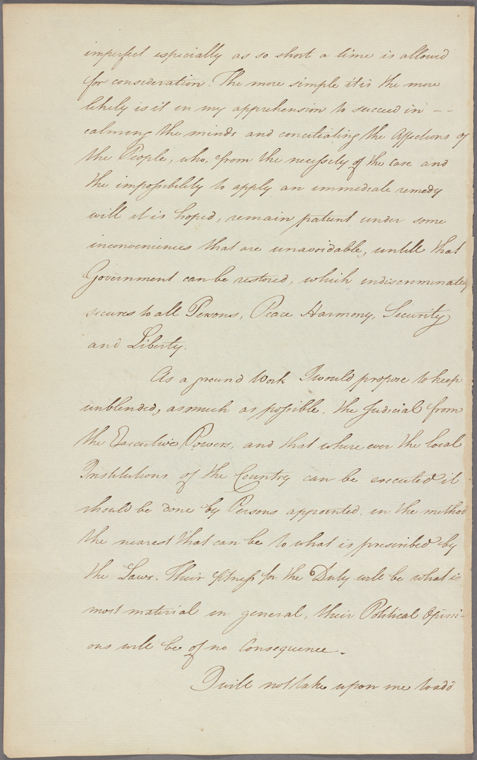 imperfect especially as so short a time is allowed
for consideration. The more simple it is the more
likely is it in my apprehension to succeed in --
calming the minds and conciliating the Affections of
the People, who, from the necessity of the case and
the impossibility to apply an immediate remedy
will it is hoped, remain patient under some
inconveniences that are unavoidable, untill that
Government can be restored, which indiscriminately
secures to all Persons, Peace Harmony, Security
and Liberty.
As a ground Work I would propose to keep
unblended, as much as possible, the Judicial from
the Executive Powers, and that where ever the local
Institutions of the Country can be executed it
should be done by Persons appointed, in the method
the nearest that can be to what is prescribed by
the Laws. Their fitness for the Duty will be what is
most material in general, their Political Opini-
ons will be of no Consequence.
I will not take upon me to add